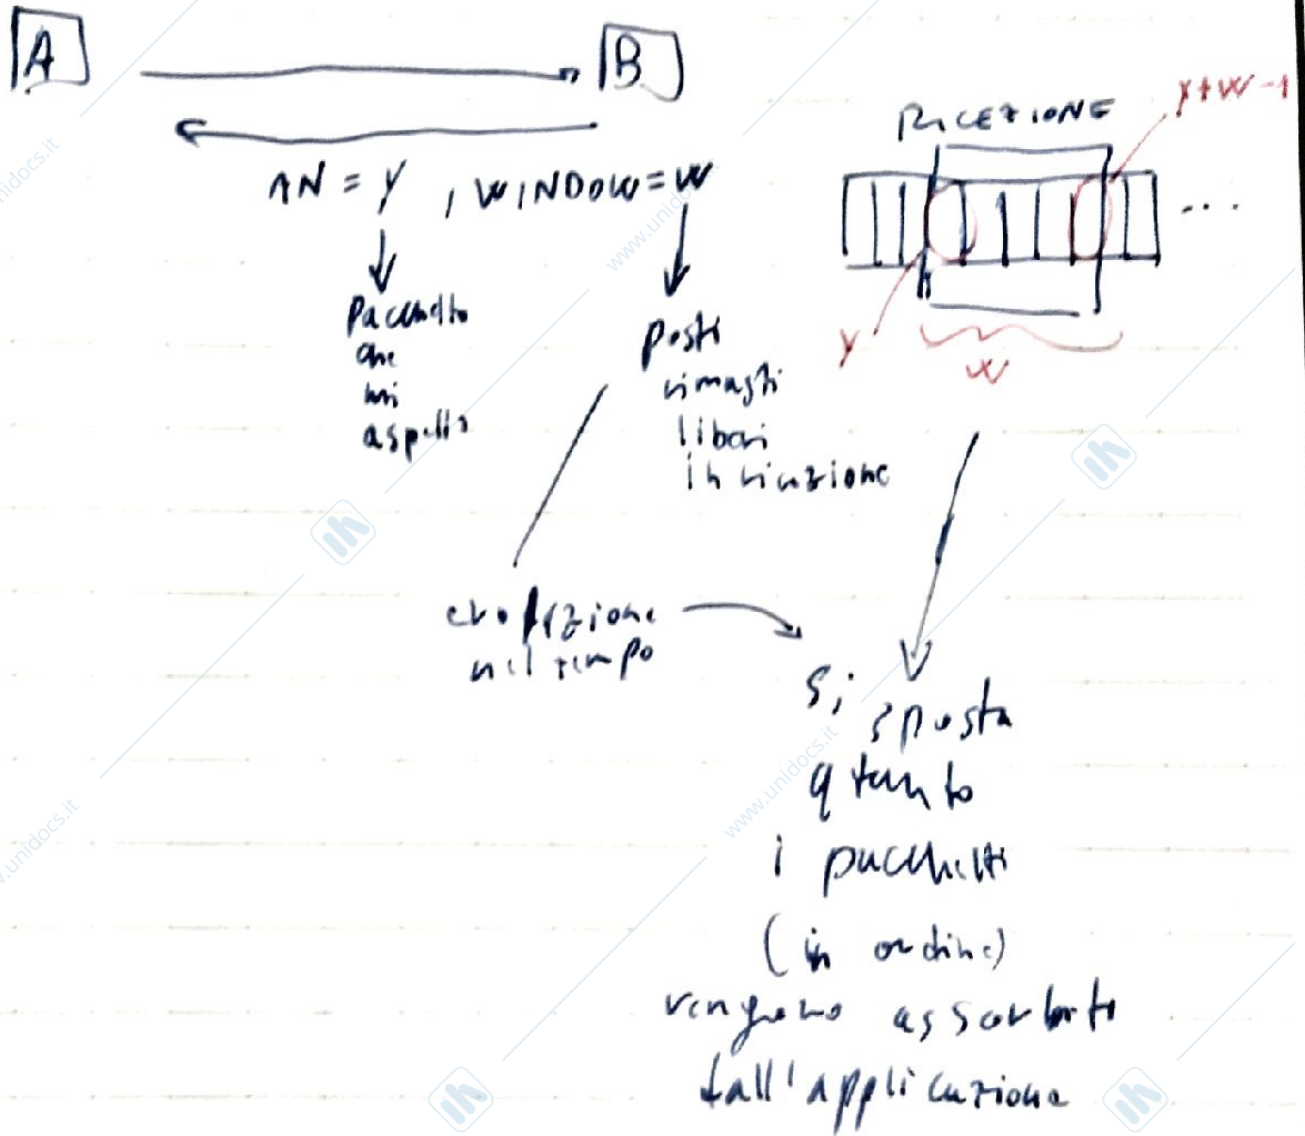 A
B
RICEZIONE
y+W-1
AN = y , WINDOW = W
y
W
pacchetto
che
mi
aspetto
posti
rimasti
liberi
in ricezione
evoluzione
nel tempo
si sposta
qtanto
i pacchetti
(in ordine)
vengono assorbiti
dall'applicazione
www.unidocs.it
www.unidocs.it
unidocs.it
unidocs.it